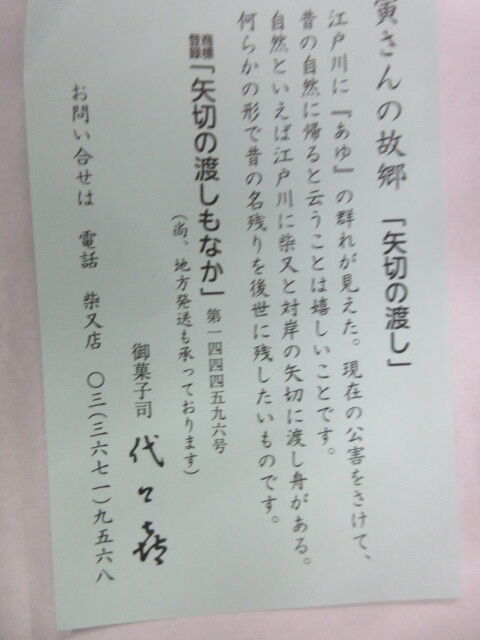 寅さんの故郷 「矢切の渡し」
江戸川に『あゆ』の群れが見えた。現在の公害をさけて、
昔の自然に帰ると云うことは嬉しいことです。
自然といえば江戸川に柴又と対岸の矢切に渡し舟がある。
何らかの形で昔の名残りを後世に残したいものです。
商標登録「矢切の渡しもなか」第一四四四五九六号
(尚、地方発送も承っております)
御菓子司 代々喜
お問い合せは 電話 柴又店 〇三(三六七一)九五六八